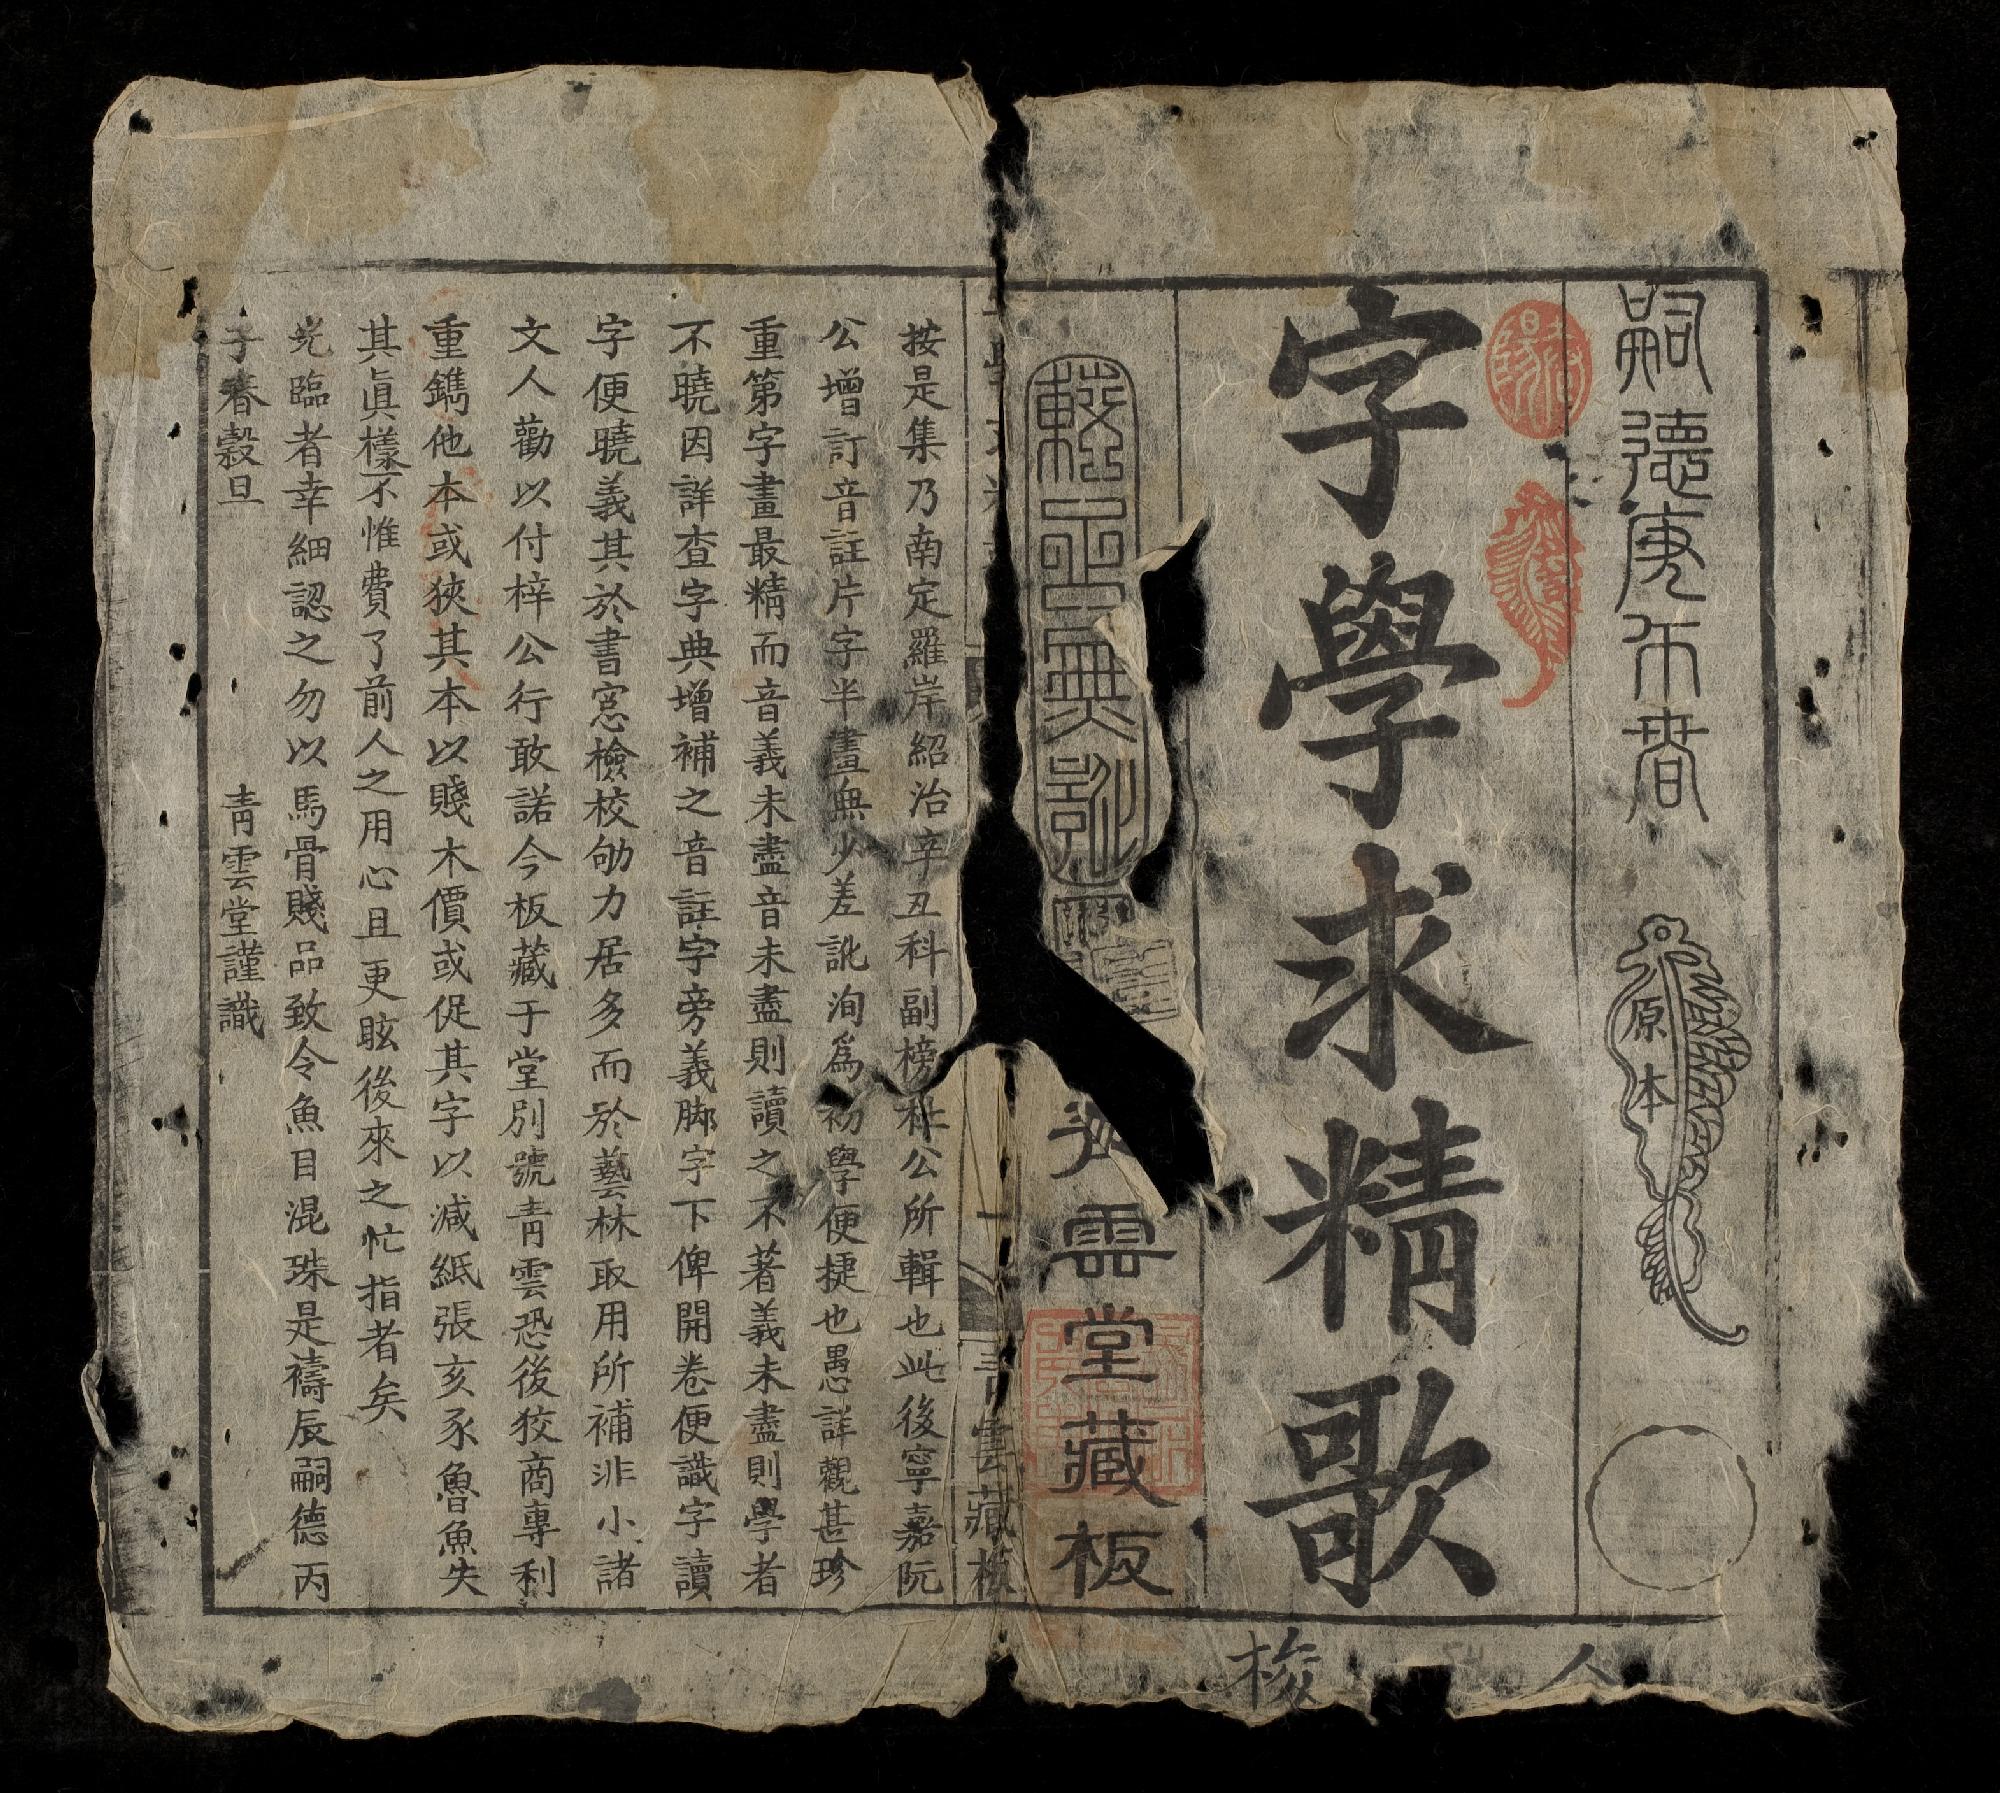 嗣德庚午春
原本
字學求精歌
較正無訛
雲堂藏板
人
梭
青雲藏板
按是集乃南定羅岸紹治辛丑科副榜杜公所輯也此後寧嘉阮
公增訂音註片字半畫無少差訛洵爲初學便捷也愚詳觀甚珍
重第字畫最精而音義未盡音未盡則讀之不著義未盡則學者
不曉因詳查字典增補之音註字旁義脚字下俾開卷便識字讀
字便曉義其於書窓檢校劬力居多而於藝林取用所補非小諸
文人勸以付梓公行敢諾今板藏于堂別號青雲恐後狡商專利
重鐫他本或狹其本以賤木價或促其字以減紙張亥豕魯魚失
其眞樣不惟費了前人之用心且更眩後來之忙指者矣
光臨者幸細認之勿以馬骨賤品致令魚目混珠是禱辰嗣德丙
子春穀旦
青雲堂謹識